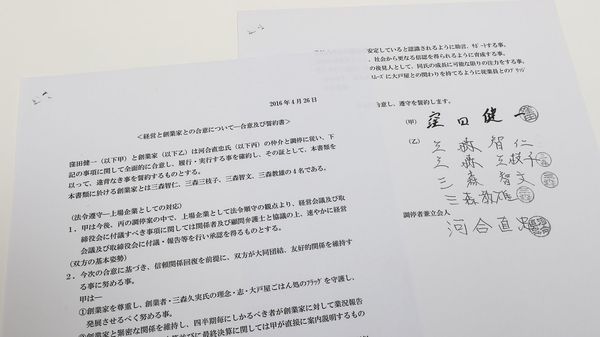 2016年4月26日
<経営と創業家との合意について―合意及び誓約書>
窪田健一(以下甲)と創業家(以下乙)は河合直忠氏(以下丙)の仲介と調停に従い、下
記の事項に関して全面的に合意し、履行・実行する事を確約し、その証として、本書類を
以って、違背なき事を誓約するものとする。
本書類に於ける創業家とは三森智仁、三森三枝子、三森智文、三森教雄の4名である。
(法令遵守―上場企業としての対応)
1.甲は今後、丙の調停案の中で、上場企業として法令順守の観点より、経営会議及び取
締役会に付議すべき事項に関しては関係者及び顧問弁護士と協議の上、速やかに経営
会議及び取締役会に付議・報告等を行い承認を得るものとする。
(双方の基本姿勢)
2.今次の合意に基づき、信頼関係回復を前提に、双方が大同団結、友好的関係を維持す
る事に努める事。
甲は―
①創業家を尊重し、創業者・三森久実氏の理念・志・大戸屋ごはん処のフラッグを守護し、
発展させるべく努める事。
②創業家と緊密な関係を維持し、四半期毎にしかるべき者が創業家に対して業況報告
並びに最終決算に関しては甲が直接に案内説明するもの
安定していると認識されるように助言、サポートする事。
、社会から更なる信認を得られるように育成する事。
の後見人として、同氏の成長に可能な限りの注力をする事。
スムーズに大戸屋との関わりを持てるように従業員との
合意し、遵守を誓約します。
(甲) 窪田健一
(乙) 三森智仁
三森三枝子
三森智文
三森教雄
調停者兼立会人
河合直忠